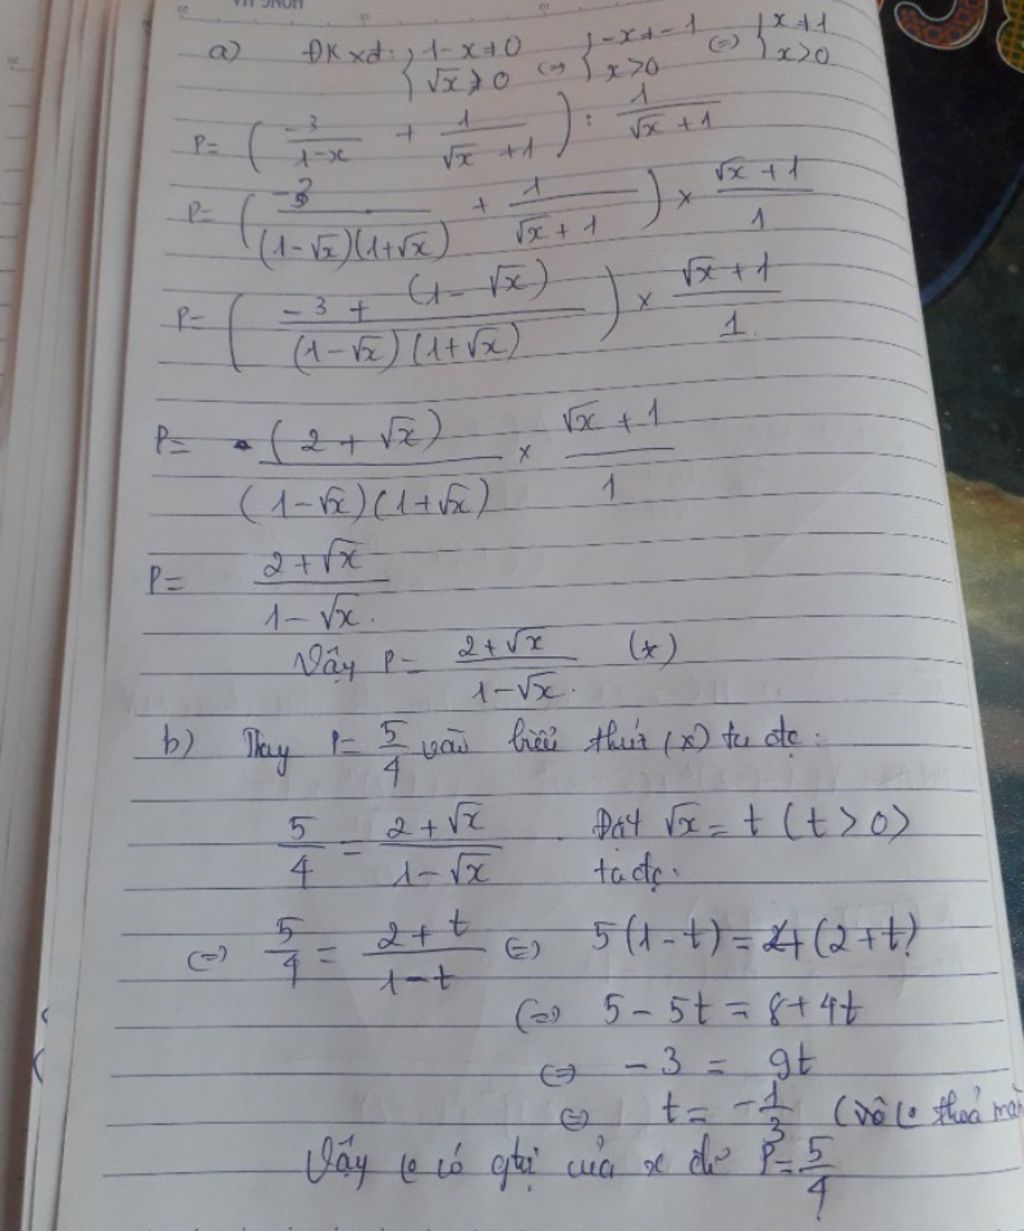 a) ĐKxđ: { 1-x ≠ 0 √x ≥ 0 <=> { -x ≠ -1 x > 0 <=> { x ≠ 1 x > 0
P = ( -3/(1-x) + 1/(√x + 1) ) : 1/(√x + 1)
P = ( -3/((1-√x)(1+√x)) + 1/(√x + 1) ) × (√x + 1)/1
P = ( (-3 + (1-√x))/((1-√x)(1+√x)) ) × (√x + 1)/1
P = -(2 + √x)/((1-√x)(1+√x)) × (√x + 1)/1
P = (2 + √x)/(1-√x).
Vậy P = (2+√x)/(1-√x). (*)
b) Thay P = 5/4 vào biểu thức (*) ta đc:
5/4 = (2+√x)/(1-√x) Đặt √x = t (t > 0)
ta đc.
<=> 5/4 = (2+t)/(1-t) <=> 5(1-t) = 4(2+t)
<=> 5 - 5t = 8 + 4t
<=> -3 = 9t
<=> t = -1/3 ( thoả mãn
Vậy có gtrị của x để P = 5/4